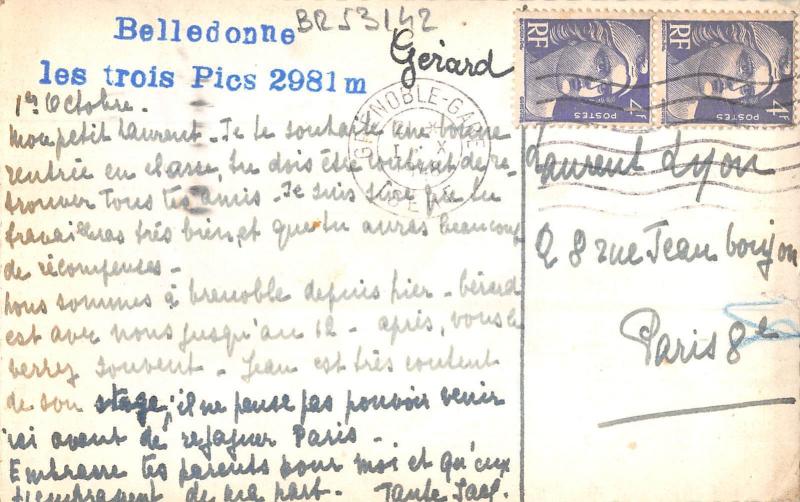 BR53142
Belledonne
les trois Pics 2981m
Gérard
GRENOBLE-GARE
ISERE
RF
POSTES
4F
RF
POSTES
4F
1er Octobre.
Mon petit Laurent. Je te souhaite une bonne
rentrée en classe, tu dois être content de re-
trouver tous tes amis. Je suis sûre que tu
travailleras très bien, et que tu auras beaucoup
de récompenses.
nous sommes à Grenoble depuis hier. Gérard
est avec nous jusqu'au 12. après, vous le
verrez souvent. Jean est très content
de son stage; il ne pense pas pouvoir venir
ici avant de regagner Paris.
Embrasse tes parents pour moi et qu'eux
t'embrassent de ma part. Tante
Laurent Lyon
28 rue Jean Goujon
Paris 8e